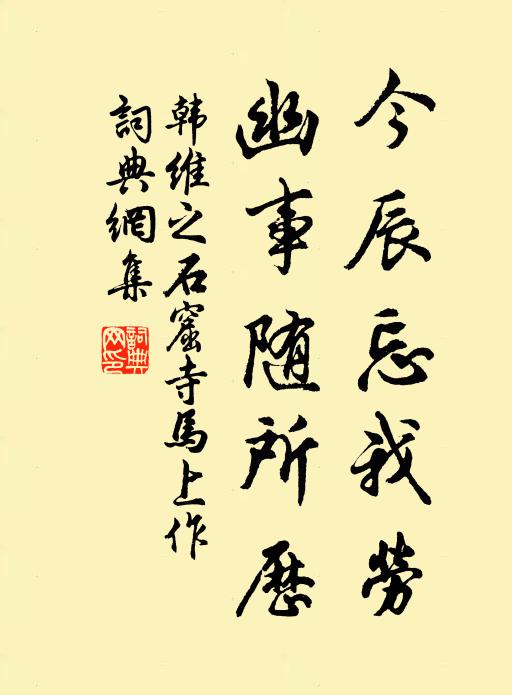 今辰忘我劳
幽事随所歷
韩维之石窟寺馬上作
詞典網集
詞典网印